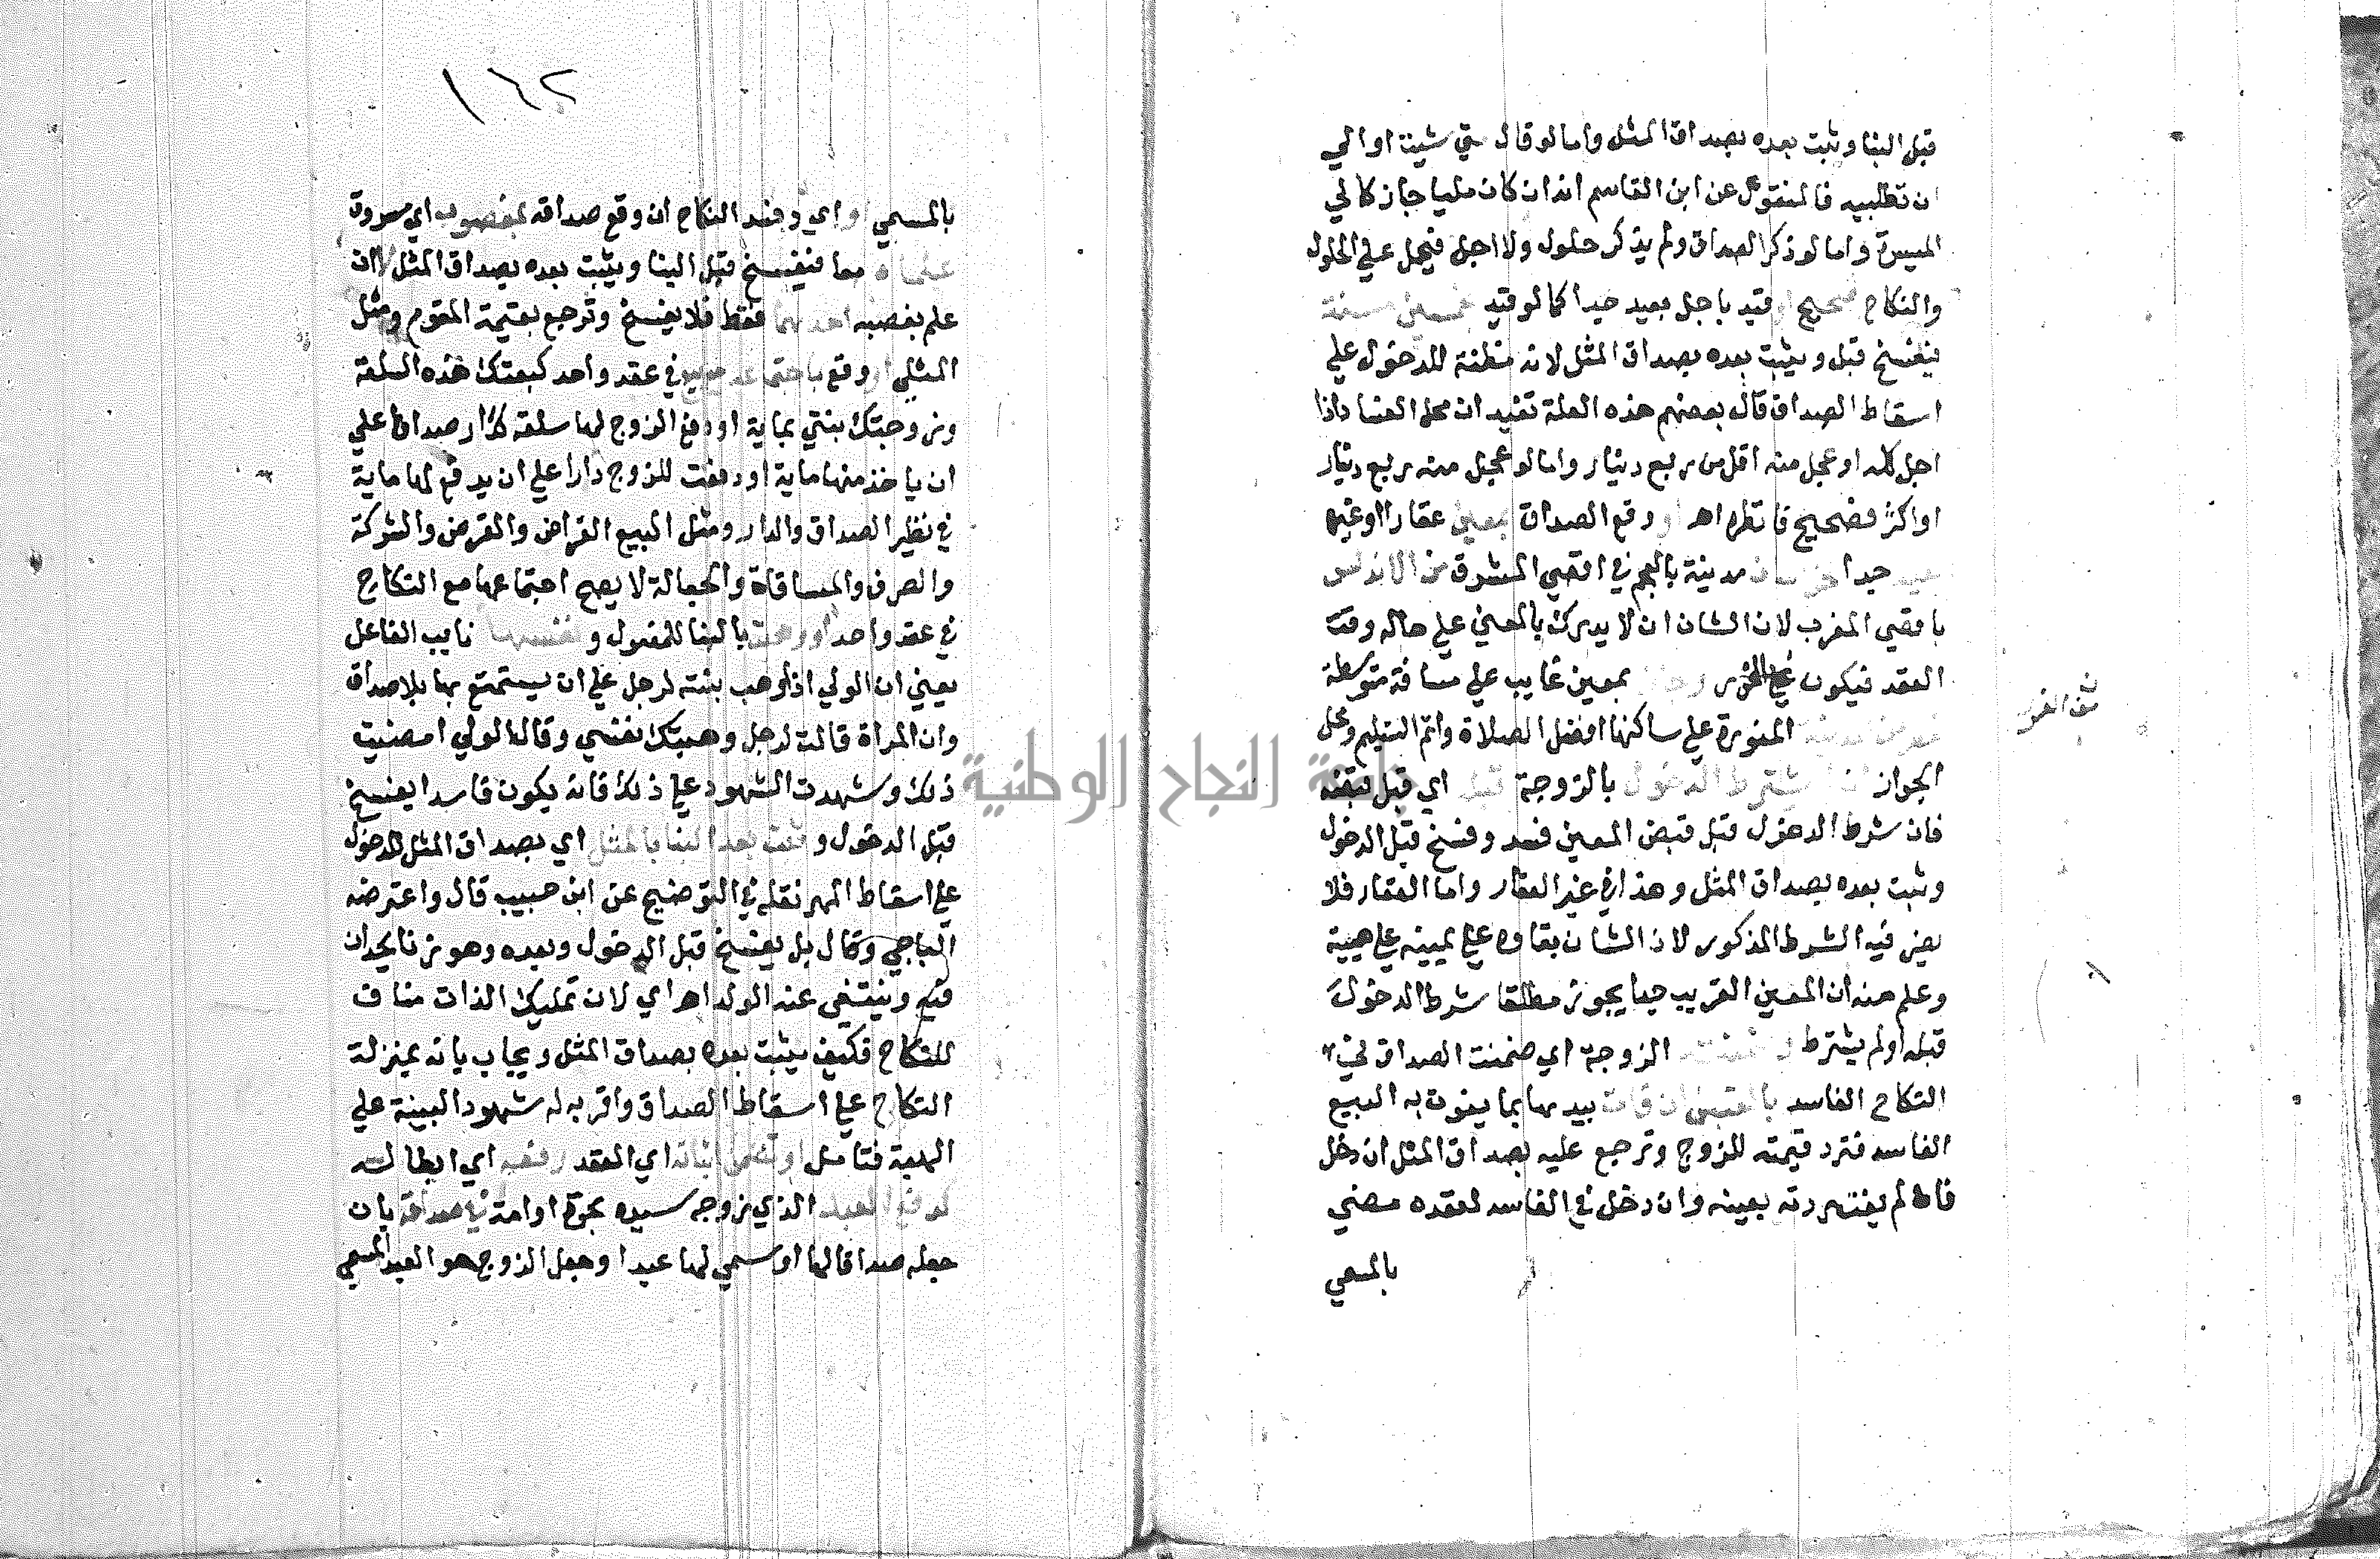 قبل البنا وثبت بعده بصداق المثل واما لو قال متي شيت او الي
ان تطلبيه فالمنقول عن ابن القاسم انه ان كان مليا جاز كالي
الميسرة واما لو ذكر الصداق ولم يذكر حلول ولا اجل فيحمل علي الحلول
والنكاح صحيح او قيد باجل بعيد جيدا كما لو قيد خمسين سنة
فيفسخ قبل ويثبت بعده بصداق المثل لانه مظنة للدخول علي
اسقاط الصداق قال بعضهم هذه العلة تفيد ان محل الفساد اذا
اجل كله او عجل منه اقل من ربع دينار واما لو عجل منه ربع دينار
او اكثر فصحيح فانظره اهـ او وقع الصداق بمعين عقارا او غيره
بعيد جدا خراسان مدينة بالعجم في اقصي المشرق من الاندلس
باقصي المغرب لان الشان ان لا يدرك بالمعني علي حاله وقت
العقد فيكون بمعين غايب علي مسافة متوسطة
المنورة علي ساكنها افضل الصلاة واتم التسليم ومحل
الجواز ان يشترط الدخول بالزوجة قبل اي قبل قبضه
فان شرط الدخول قبل قبض المعين فسد وفسخ قبل الدخول
وثبت بعده بصداق المثل وهذا في غير العقار واما العقار فلا
يضر فيه الشرط المذكور لان الشان بقاوه علي هيية
وعلم منه ان المعين القريب جدا يجوز مطلقا شرط الدخول
قبله او لم يشترط وضمنت الزوجة اي ضمنت الصداق في
النكاح الفاسد بالقبض ان فات بيدها بما يفوت به البيع
الفاسد فترد قيمته للزوج وترجع عليه بصداق المثل ان دخل
فان لم يفت ردته بعينه وان دخل في الفاسد لعقده مضي
بالمسمي
١٦٢
بالمسمي او اي وفسد النكاح ان وقع صداقه بمغصوب اي مسروق
علماه معا فيفسخ قبل البنا ويثبت بعده بصداق المثل لا ان
علم بغصبه احدهما فقط فلا يفسخ وترجع بقيمة المقوم ومثل
المثلي او وقع باجتماعه مع بيع في عقد واحد كبعتك هذه السلعة
وزوجتك بنتي بماية او دفع الزوج لها سلعة كدار صداقا علي
ان ياخذ منها ماية او دفعت للزوج دارا علي ان يدفع لها ماية
في نظير الصداق والدار ومثل البيع القراض والقرض والشركة
والصرف والمساقاة والجعالة لا يصح اجتماعها مع النكاح
في عقد واحد او وهبت بالبنا للمفعول و نفسها نايب الفاعل
يعني ان الولي اذا وهب بنته لرجل علي ان يستمتع بها بلا صداق
وان المراة قالت لرجل وهبتك نفسي وقال الولي امضيت
ذلك وشهدت الشهود علي ذلك فانه يكون فاسدا يفسخ
قبل الدخول و ثبت بعد البنا بالمثل اي بصداق المثل للدخول
علي اسقاط المهر نقله في التوضيح عن ابن حبيب قال واعترضه
الباجي وقال بل يفسخ قبل الدخول وبعده وهو زنا يحدان
فيه وينتفي عنه الولد اهـ اي لان تمليك الذات مناف
للنكاح فكيف يثبت بعده بصداق المثل ويجاب بانه بمنزلة
النكاح علي اسقاط الصداق واقربه له شهود البينة علي
الهبة فتامل او تضمن اثباته اي العقد رفعه اي ابطاله
كدفع العبد الذي زوجه سيده بحرة او امة في صداقه بان
جعله صداقا لها او سمي لها عبدا وجعل الزوج هو العبد المسمي
جامعة النجاح الوطنية